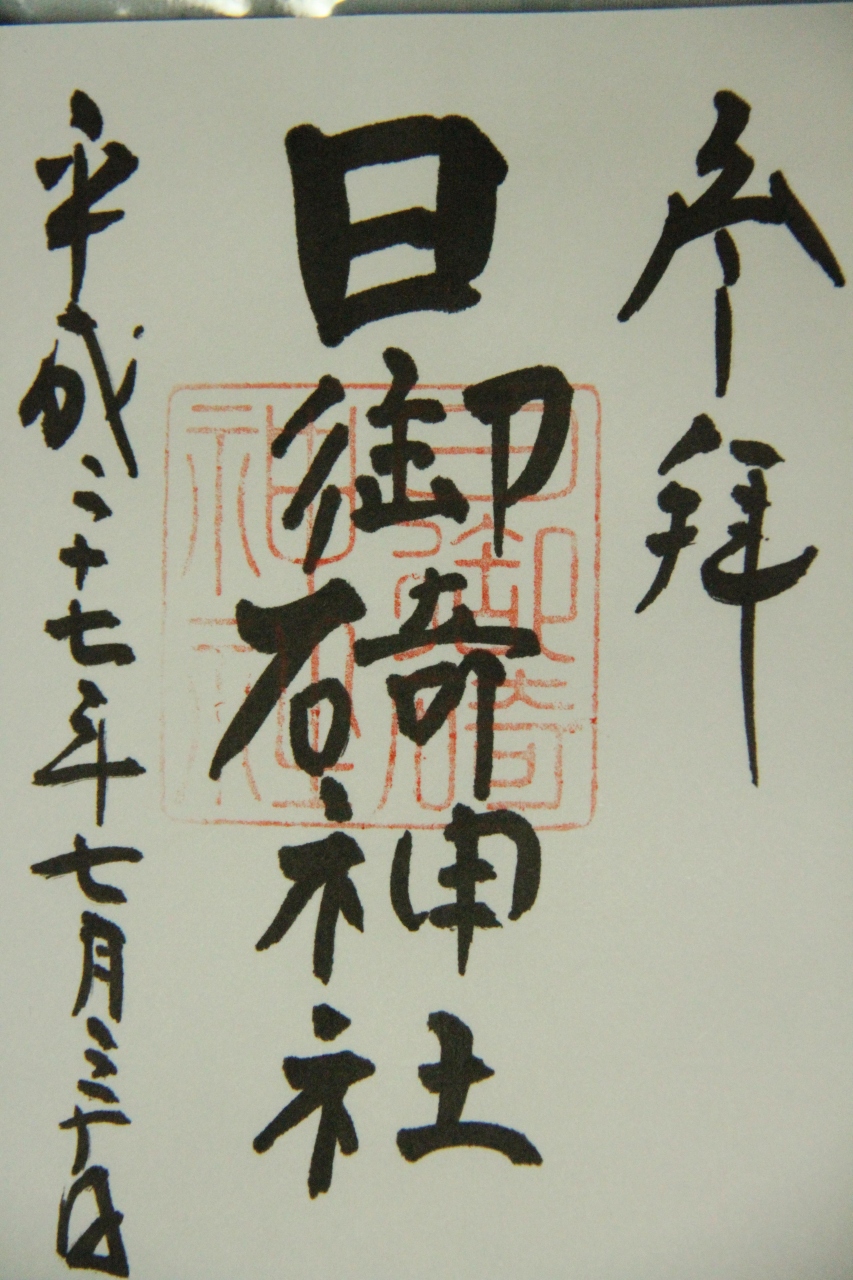 参拝
日御碕神社
平成二十七年七月三十日
日御碕
神社